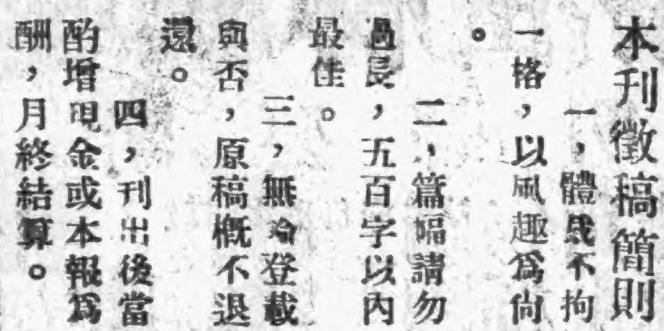 本刊徵稿簡則
一，體裁不拘
一格，以風趣爲尙
。
二，篇幅請勿
過長，五百字以內
最佳。
三，無論登載
與否，原稿槪不退
還。
四，刊出後當
酌增現金或本報爲
酬，月終結算。